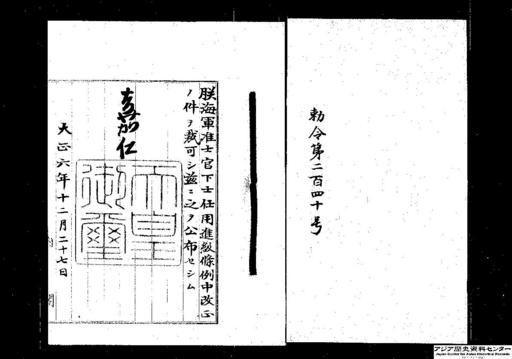 勅令第二百四十号
朕海軍准士官下士任用進級條例中改正
ノ件ヲ裁可シ茲ニ之ヲ公布セシム
嘉仁
天皇御璽
大正六年十二月二十七日
アジア歴史資料センター
Japan Center for Asian Historical Records